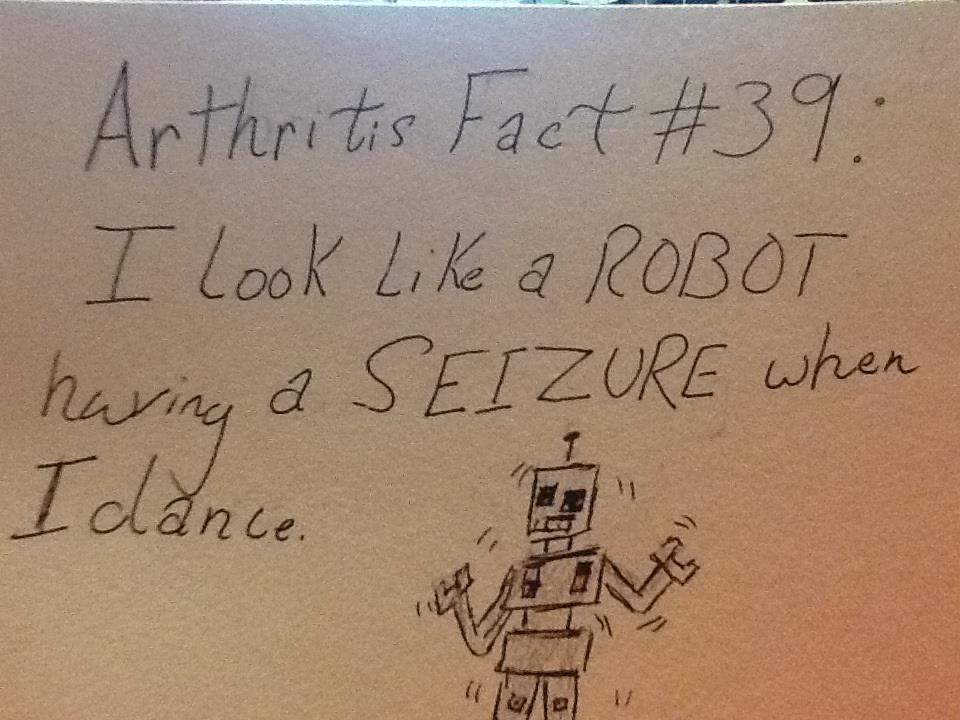 Arthritis Fact #39:
I Look Like a ROBOT
having a SEIZURE when
I dance.